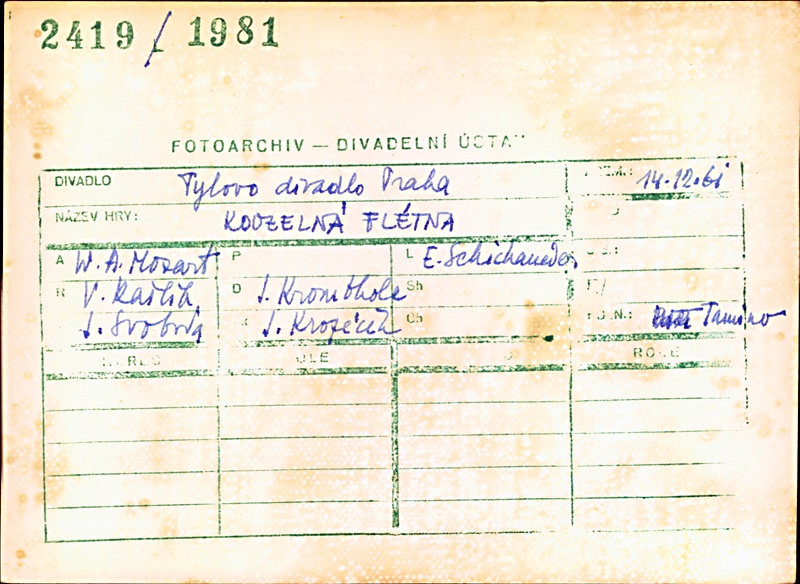 2419 / 1981
FOTOARCHIV — DIVADELNÍ ÚSTAV
DIVADLO Tylovo divadlo Praha 14.12.61
NÁZEV HRY: KOUZELNÁ FLÉTNA
A W. A. Mozart P L E. Schikaneder
R V. Kašlík D J. Krombholc Sh
J. Svoboda J. Kropáček Ch Tamino
ROLE